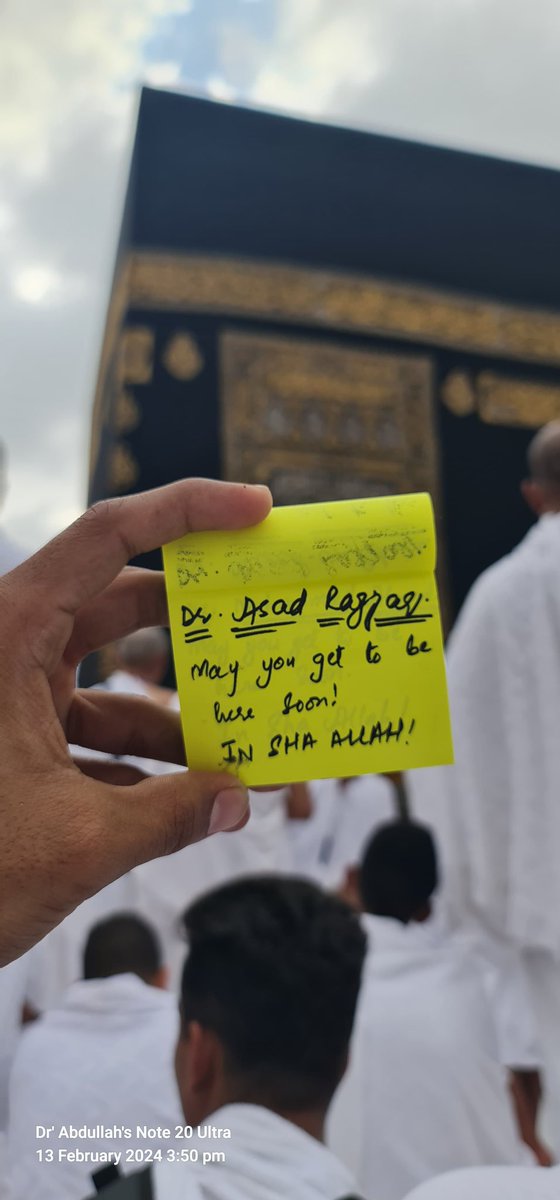 Dr. Asad Razzaq.
May you get to be
here soon!
IN SHA ALLAH!
Dr' Abdullah's Note 20 Ultra
13 February 2024 3:50 pm